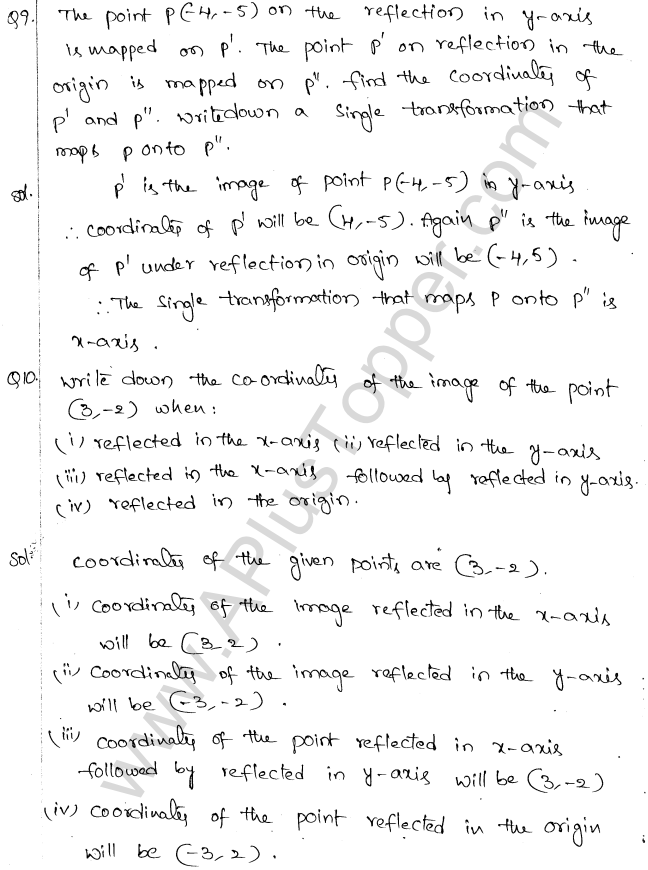 Q9. The point P(-4,-5) on the reflection in y-axis
is mapped on P'. The point P' on reflection in the
origin is mapped on P". find the coordinates of
P' and P". Write down a single transformation that
maps P onto P".
Sol. P' is the image of point P(-4,-5) in y-axis
∴ coordinates of P' will be (4,-5). Again P" is the image
of P' under reflection in origin will be (-4,5).
∴ The single transformation that maps P onto P" is
x-axis.
Q10. Write down the co-ordinates of the image of the point
(3,-2) when:
(i) reflected in the x-axis (ii) reflected in the y-axis
(iii) reflected in the x-axis followed by reflected in y-axis.
(iv) reflected in the origin.
Sol:- Coordinates of the given points are (3,-2).
(i) Coordinates of the image reflected in the x-axis
will be (3,2).
(ii) Coordinates of the image reflected in the y-axis
will be (-3,-2).
(iii) Coordinates of the point reflected in x-axis
followed by reflected in y-axis will be (3,-2)
(iv) Coordinates of the point reflected in the origin
will be (-3,2).
www.APlusTopper.com